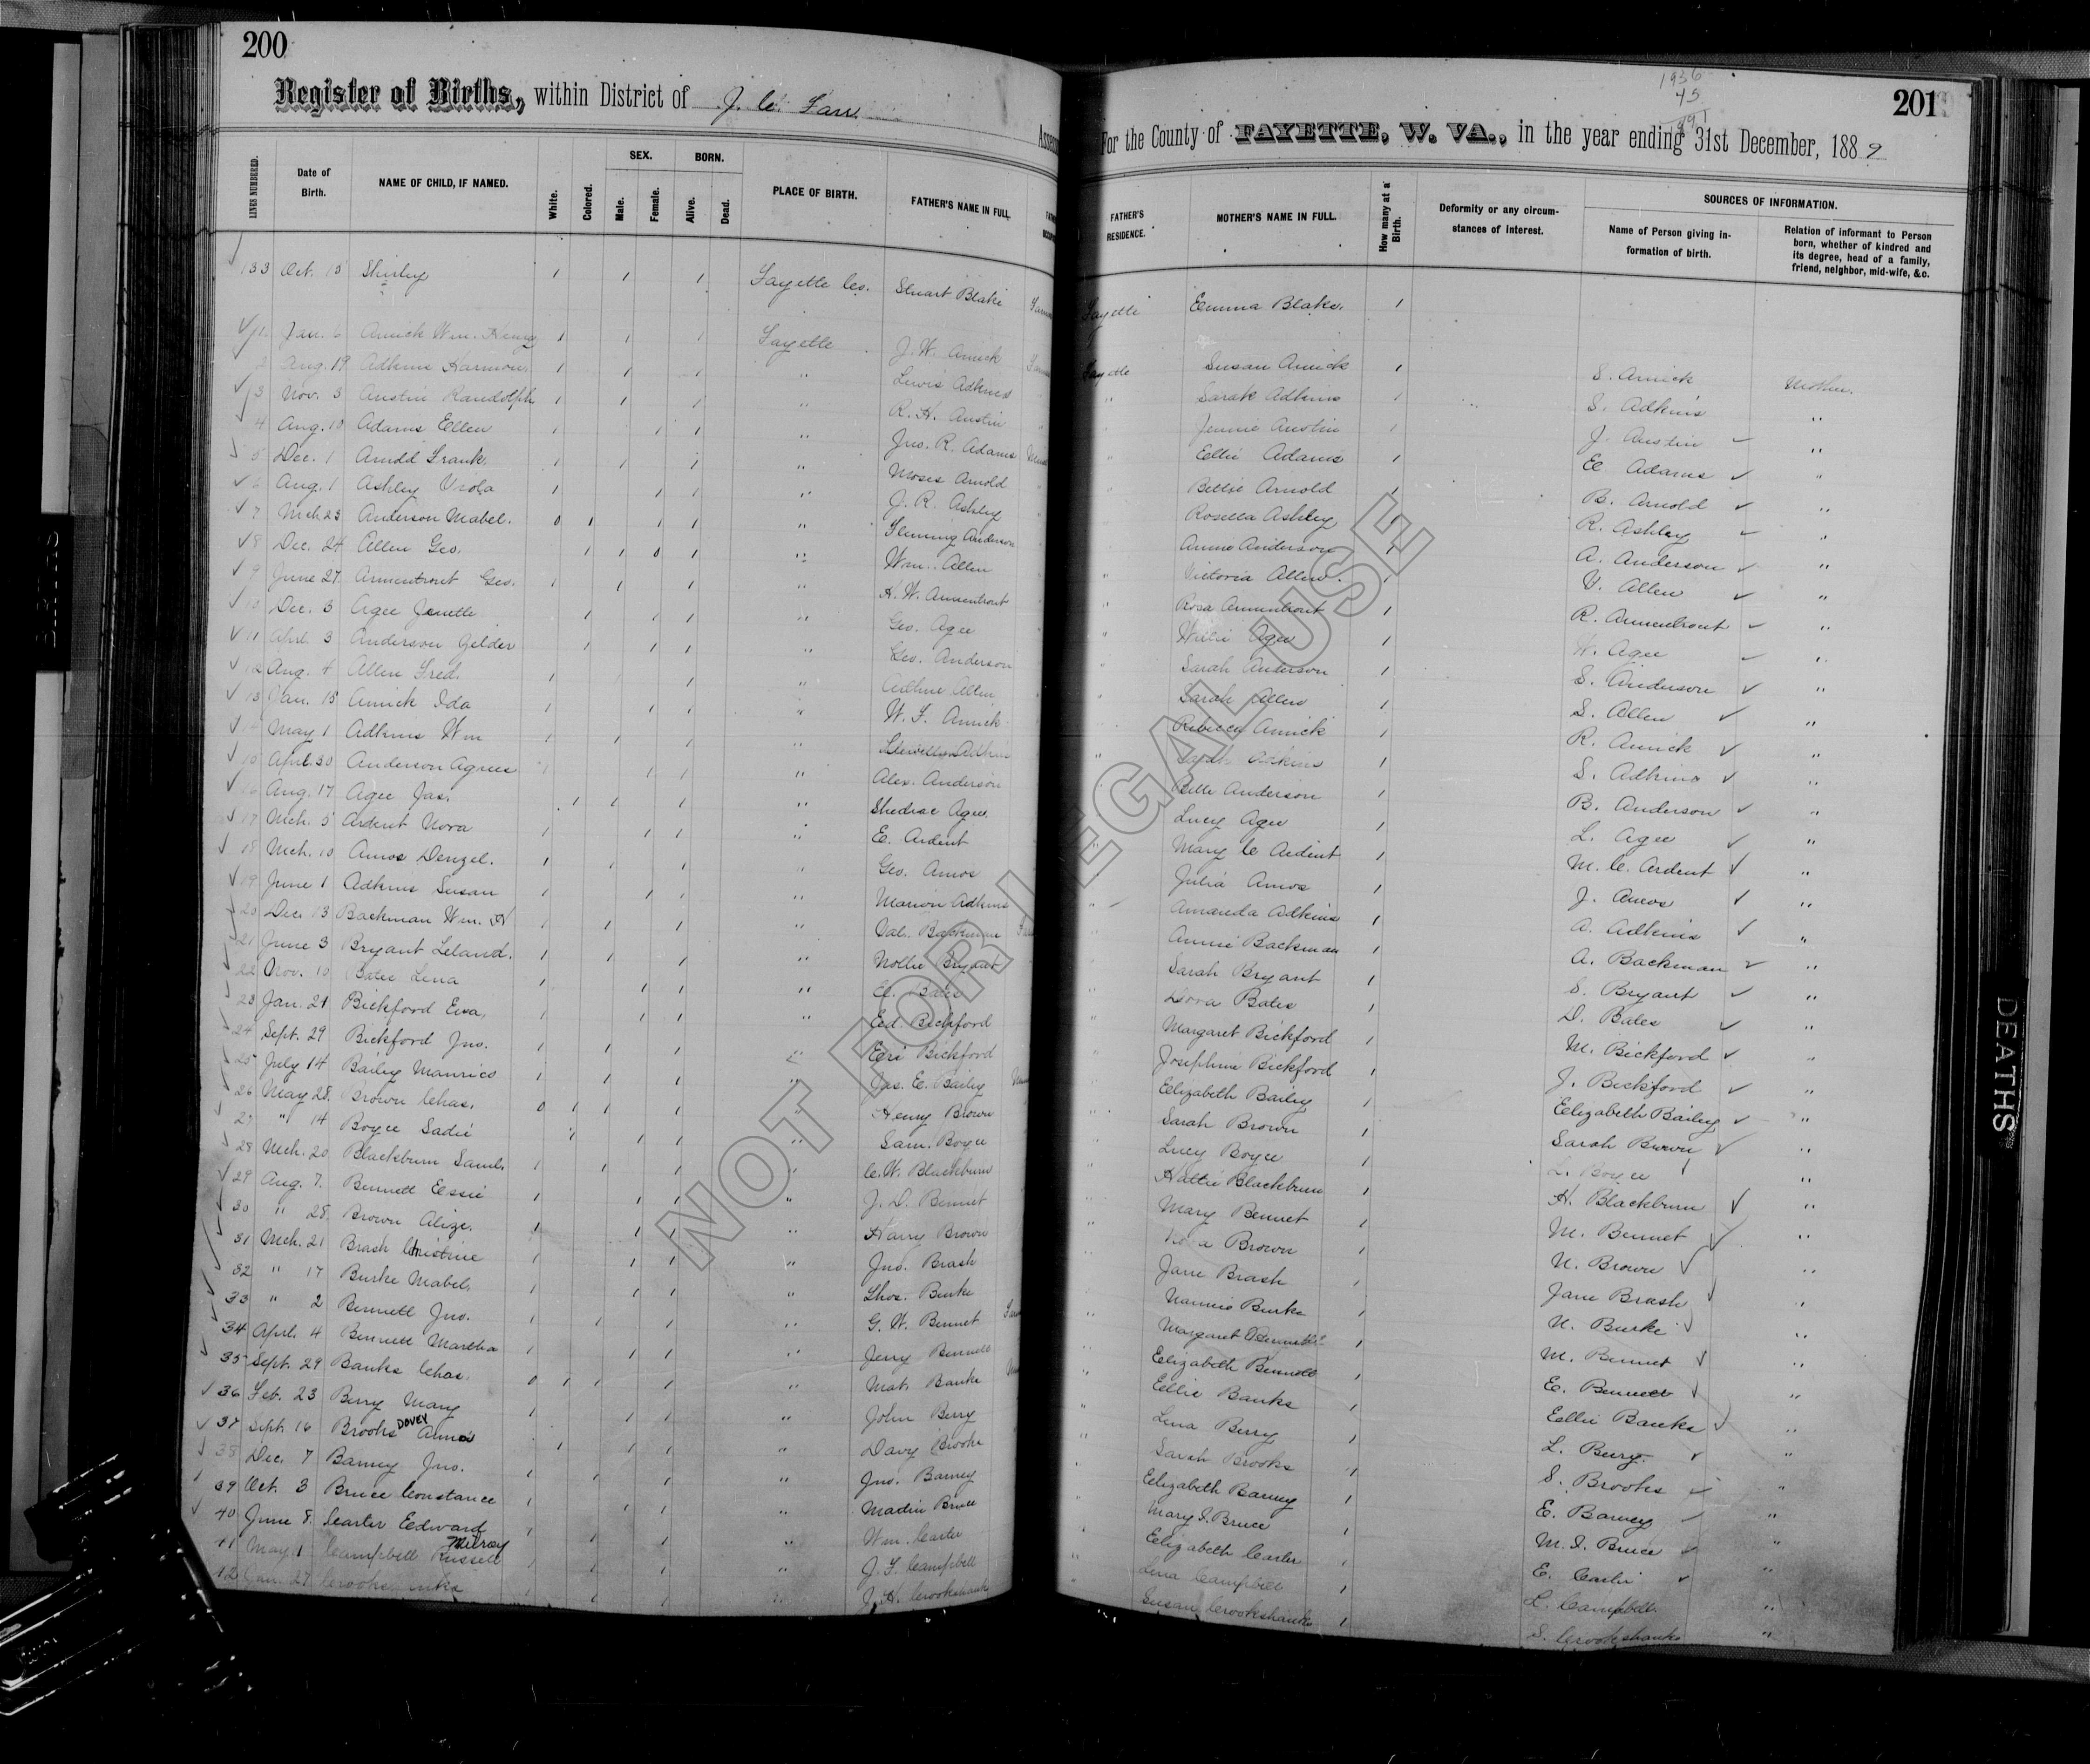 200
Register of Births, within District of J. C. Farr.
LINES NUMBERED. Date of Birth. NAME OF CHILD, IF NAMED. White. Colored. SEX. Male. Female. BORN. Alive. Dead. PLACE OF BIRTH. FATHER'S NAME IN FULL.
133 Oct. 15 Shirley 1 1 1 Fayette Co. Stuart Blake
1 Jan. 6 Amick Wm. Henry 1 1 1 Fayette J. W. Amick
2 Aug. 19 Adkins Harmon 1 1 1 " Lewis Adkins
3 Nov. 3 Austin Randolph 1 1 1 " R. H. Austin
4 Aug. 10 Adams Ellen 1 1 1 " Jno. R. Adams
5 Dec. 1 Arnold Frank 1 1 1 " Moses Arnold
6 Aug. 1 Ashley Viola 1 1 1 " J. R. Ashley
7 Mch. 23 Anderson Mabel. 0 1 1 1 " Fleming Anderson
8 Dec. 24 Allen Geo. 1 1 0 1 " Wm. Allen
9 June 27 Armentrout Geo. 1 1 1 " H. W. Armentrout
10 Dec. 3 Agee Jenette 1 1 1 " Geo. Agee
11 Apl. 3 Anderson Gilder 1 1 1 " Geo. Anderson
12 Aug. 4 Allen Fred. 1 1 " Allen
13 Jan. 15 Amick Ida 1 1 1 " W. F. Amick
14 May 1 Adkins Wm 1 1 1 " Llewellyn Adkins
15 Apl. 30 Anderson Agnes 1 1 1 " Alex. Anderson
16 Aug. 17 Agee Jas. 1 1 1 " Shedrac Agee
17 Mch. 5 Ardent Nora 1 1 1 " E. Ardent
18 Mch. 10 Amos Denzel. 1 1 1 " Geo. Amos
19 June 1 Adkins Susan 1 1 1 " Marion Adkins
20 Dec. 13 Backman Wm. H 1 1 1 " Val. Backman
21 June 3 Bryant Leland. 1 1 1 " Nollie Bryant
22 Nov. 10 Bates Lena 1 1 1 " Bates
23 Jan. 21 Bickford Eva, 1 1 1 " Ed. Bickford
24 Sept. 29 Bickford Jno. 1 1 1 " Eri Bickford
25 July 14 Bailey Maurice 1 1 1 " Jas. E. Bailey
26 May 28. Brown Chas. 0 1 1 1 " Henry Brown
27 " 14 Boyce Sadie 1 1 1 " Sam. Boyce
28 Mch. 20 Blackburn Saml. 1 1 1 " C. W. Blackburn
29 Aug. 7. Bennett Essie 1 1 1 " J. D. Bennet
30 " 28. Brown Alize. 1 1 1 " Harry Brown
31 Mch. 21 Brash Christine 1 1 1 " Jno. Brash
32 " 17 Burke Mabel. 1 1 1 " Thos. Burke
33 " 2 Bennett Jno. 1 1 1 " G. W. Bennet
34 Apl. 4 Bennett Martha 1 1 1 " Jerry Bennett
35 Sept. 29 Banks Chas. 0 1 1 1 " Mat. Banks
36 Feb. 23 Berry Mary 1 1 1 " John Berry
37 Sept. 16 Brooks DOVEY Anna 1 1 1 " Davy Brooks
38 Dec. 7 Barney Jno. 1 1 1 " Jno. Barney
39 Oct. 3 Bruce Constance 1 1 1 " Martin Bruce
40 June 8. Carter Edward 1 1 1 " Wm. Carter
41 May 1 Campbell Russell Milroy 1 1 1 " J. F. Campbell
42 Jan. 27 1 1 1 " J. H. Crookshank
1936
45
1891
201
For the County of FAYETTE, W. VA., in the year ending 31st December, 1889
FATHER'S RESIDENCE. MOTHER'S NAME IN FULL. How many at a Birth. Deformity or any circumstances of interest. SOURCES OF INFORMATION. Name of Person giving information of birth. Relation of informant to Person born, whether of kindred and its degree, head of a family, friend, neighbor, mid-wife, &c.
Fayette Emma Blake. 1
Fayette Susan Amick 1 S. Amick Mother.
" Sarah Adkins 1 S. Adkins "
" Jennie Austin 1 J. Austin "
" Ellie Adams 1 E Adams "
" Bettie Arnold 1 B. Arnold "
Rosella Ashley 1 R. Ashley "
Annie Anderson 1 A. Anderson "
" Victoria Allen. 1 V. Allen "
" Rosa Armentrout 1 R. Armentrout "
" Willie Agee 1 W. Agee "
" Sarah Anderson 1 S. Anderson "
" Sarah Allen 1 S. Allen "
Rebecca Amick 1 R. Amick "
" Sarah Adkins 1 S. Adkins "
" Belle Anderson 1 B. Anderson "
" Lucy Agee 1 L. Agee "
" Mary C Ardent 1 M. C. Ardent "
" Julia Amos 1 J. Amos "
" Amanda Adkins 1 A. Adkins "
Annie Backman 1 A. Backman "
" Sarah Bryant 1 S. Bryant "
" Dora Bates 1 D. Bates "
" Margaret Bickford 1 M. Bickford "
Josephine Bickford 1 J. Bickford "
" Elizabeth Bailey 1 Elizabeth Bailey "
" Sarah Brown 1 Sarah Brown "
" Lucy Boyce 1 L. Boyce "
" Hattie Blackburn 1 H. Blackburn "
" Mary Bennet 1 M. Bennet "
" Brown 1 N. Brown "
" Jane Brash 1 Jane Brash "
" Nannie Burke 1 N. Burke "
" Margaret Bennett 1 M. Bennet "
" Elizabeth Bennett 1 E. Bennett "
" Ellie Banks 1 Ellie Banks "
" Lena Berry 1 L. Berry. "
" Sarah Brooks 1 S. Brooks "
" Elizabeth Barney 1 E. Barney "
" Mary S. Bruce 1 M. S. Bruce "
" Elizabeth Carter 1 E. Carter "
" Lena Campbell 1 L. Campbell "
" Susan Crookshanks 1 S. Crookshanks "
NOT FOR LEGAL USE
BIRTHS
DEATHS